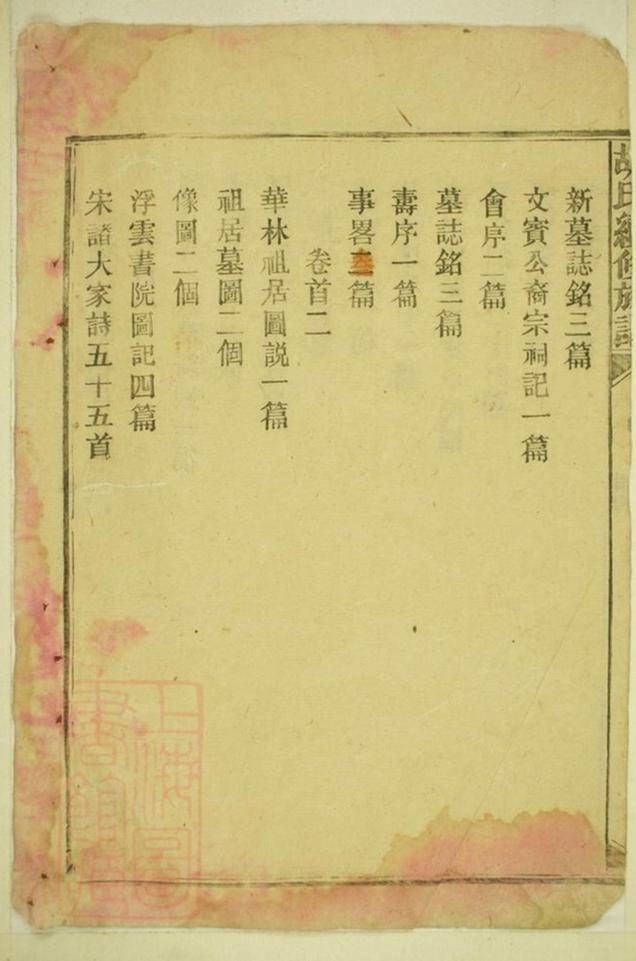 胡氏續修族譜
新墓誌銘三篇
文賓公裔宗祠記一篇
會序二篇
墓誌銘三篇
壽序一篇
事畧篇
卷首二
華林祖居圖說一篇
祖居墓圖二個
像圖二個
浮雲書院圖記四篇
宋諸大家詩五十五首
上海圖書館藏